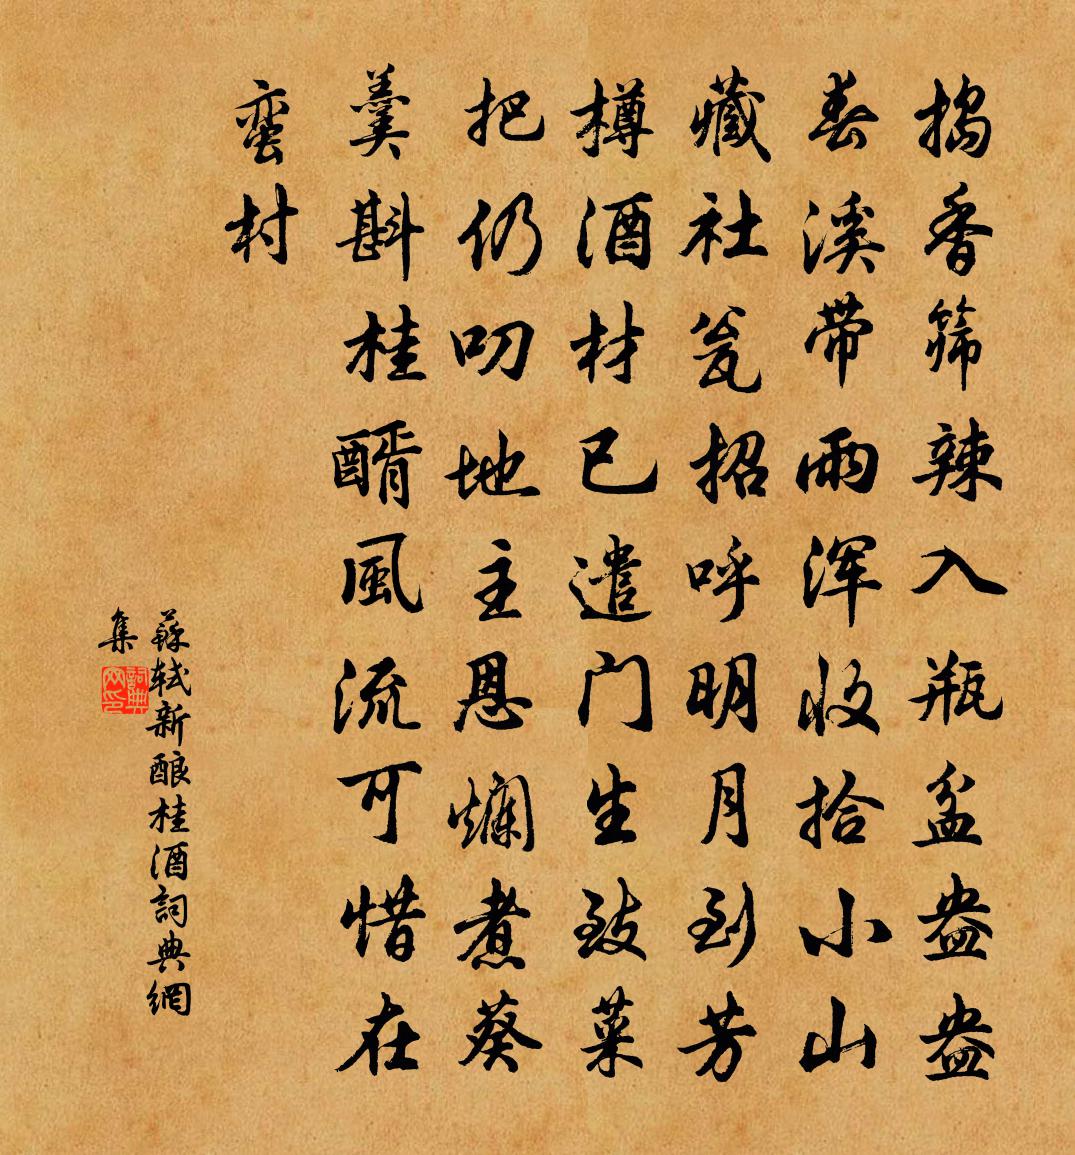 搗香筛辣入瓶盆盎盎
春溪带雨浑收拾小山
藏社瓮招呼明月到芳
樽酒材已遣门生致菜
把仍叨地主恩爛煮葵
羹斟桂醑風流可惜在
蛮村
蘇軾新酿桂酒詞典網
集
詞典网印